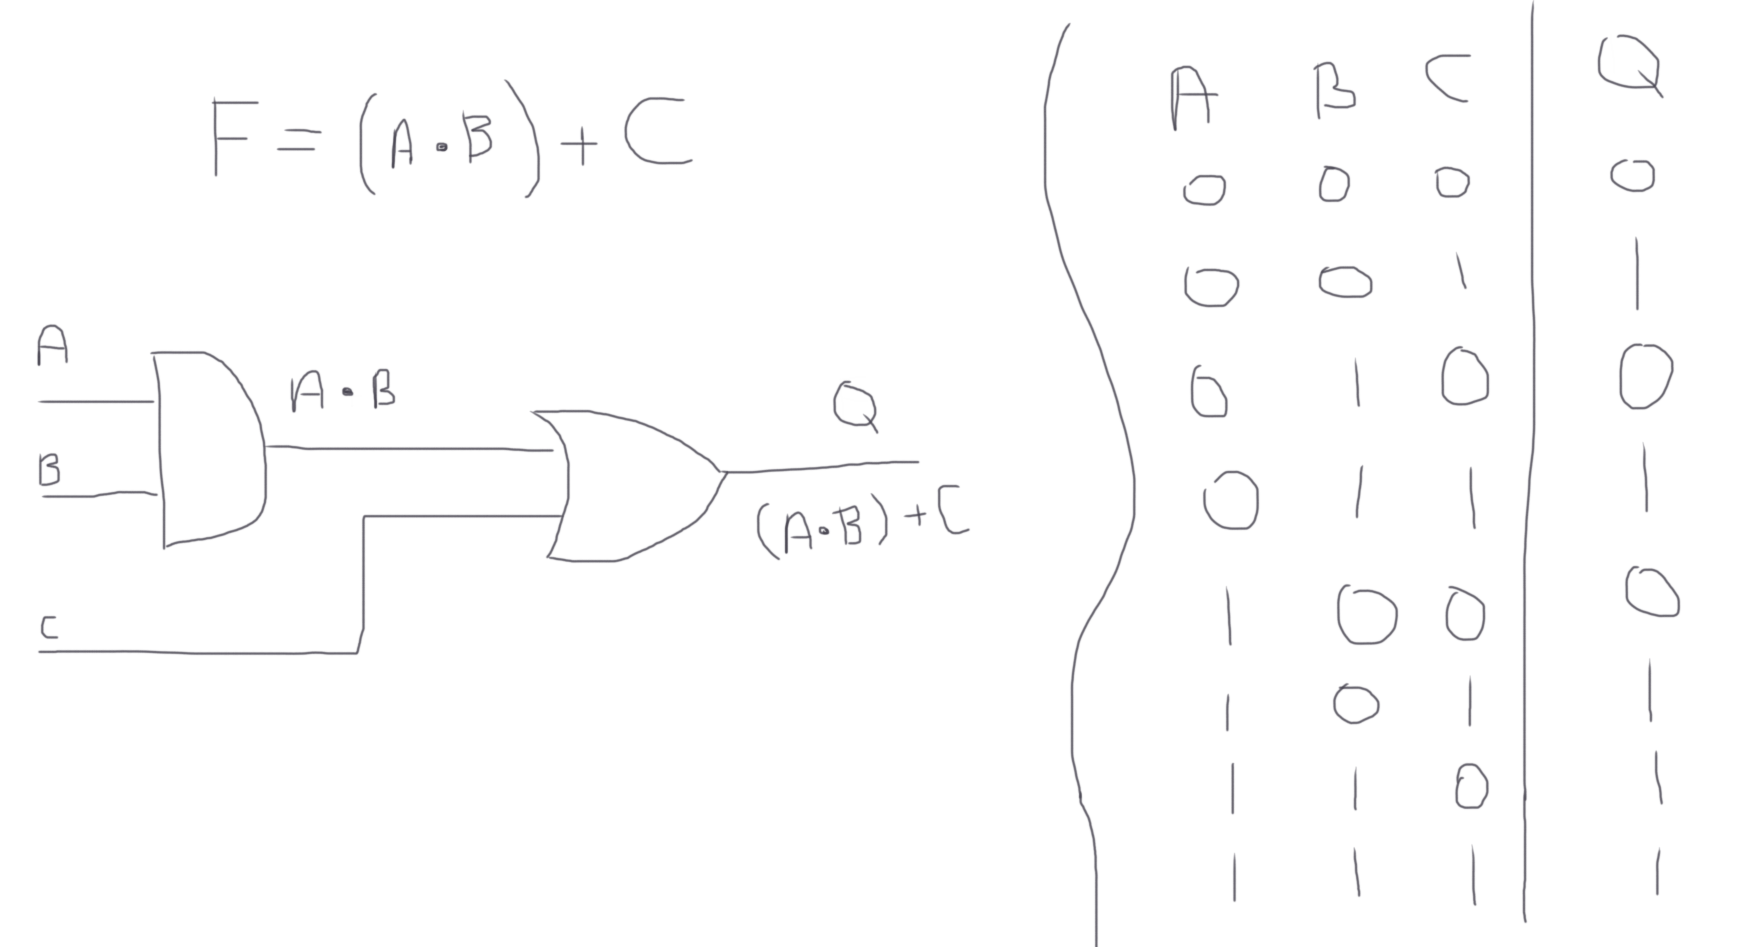 F = (A · B) + C
A
B
C
A · B
Q
(A · B) + C
A B C Q
0 0 0 0
0 0 1 1
0 1 0 0
0 1 1 1
1 0 0 0
1 0 1 1
1 1 0 1
1 1 1 1